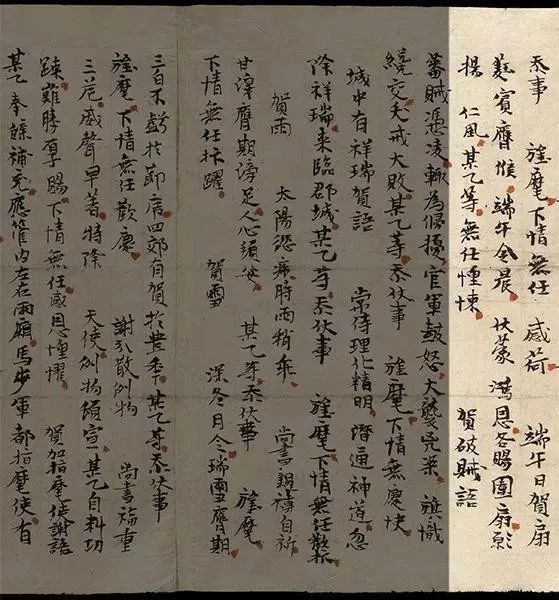 忝事　旌麾下情無任　感荷　端午日賀扇
蕤賓膺候端午令晨　伏蒙　鴻恩各賜團扇彰
揚　仁風某乙等無任悚悚　賀破賊語
蕃賊憑凌輒為侵擾官軍鼓怒大襲兇渠　旌識
纔交天戒大敗某乙等忝伏事　旌麾下情無慶快
城中有祥瑞賀語　常侍理化精明潛通神道忽
除祥瑞來臨郡城某乙等忝伏事　旌麾下情無任歡
賀雨　太陽恣　時雨稍乖　尚書親禱自祈
甘澤膺期滂足人心頓安　某乙等忝伏事　旌麾
下情無任抃躍　賀雪　深冬月令瑞雪膺期
三白不虧於節序四郊有賀於豐年某乙等忝伏事
旌麾下情無任歡慶　謝　散例物　尚書福重
三危威聲早著特降　天使例物傾宣某乙自料功
疎難勝厚賜下情無任感恩惶懼　賀加指麾使謝語
某乙奉　補充應管內左右兩廂馬步軍都指麾使有